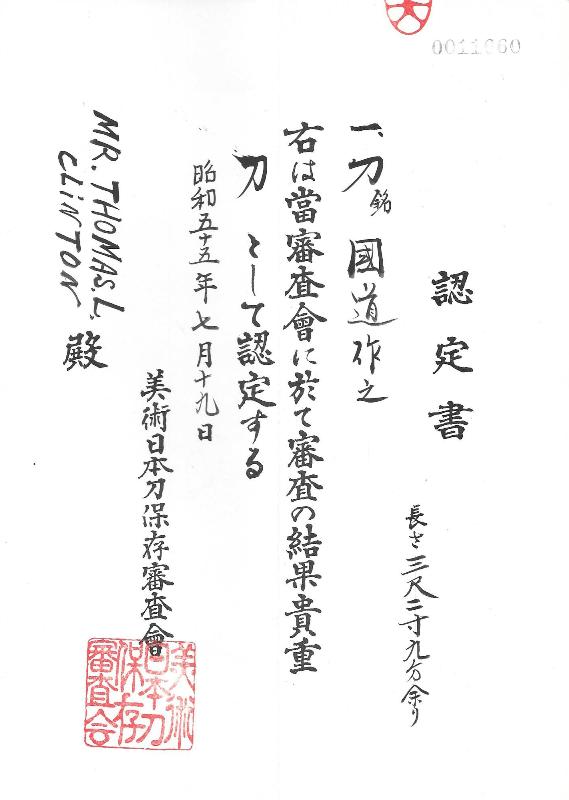 0011660
認定書
長さ三尺二寸九分余り
一、刀銘 國道作之
右は當審査會に於て審査の結果貴重
刀 として認定する
昭和五十五年七月十九日
美術日本刀保存審査會
MR. THOMAS L.
CLINTON 殿
美術
日本刀
保存
審査会